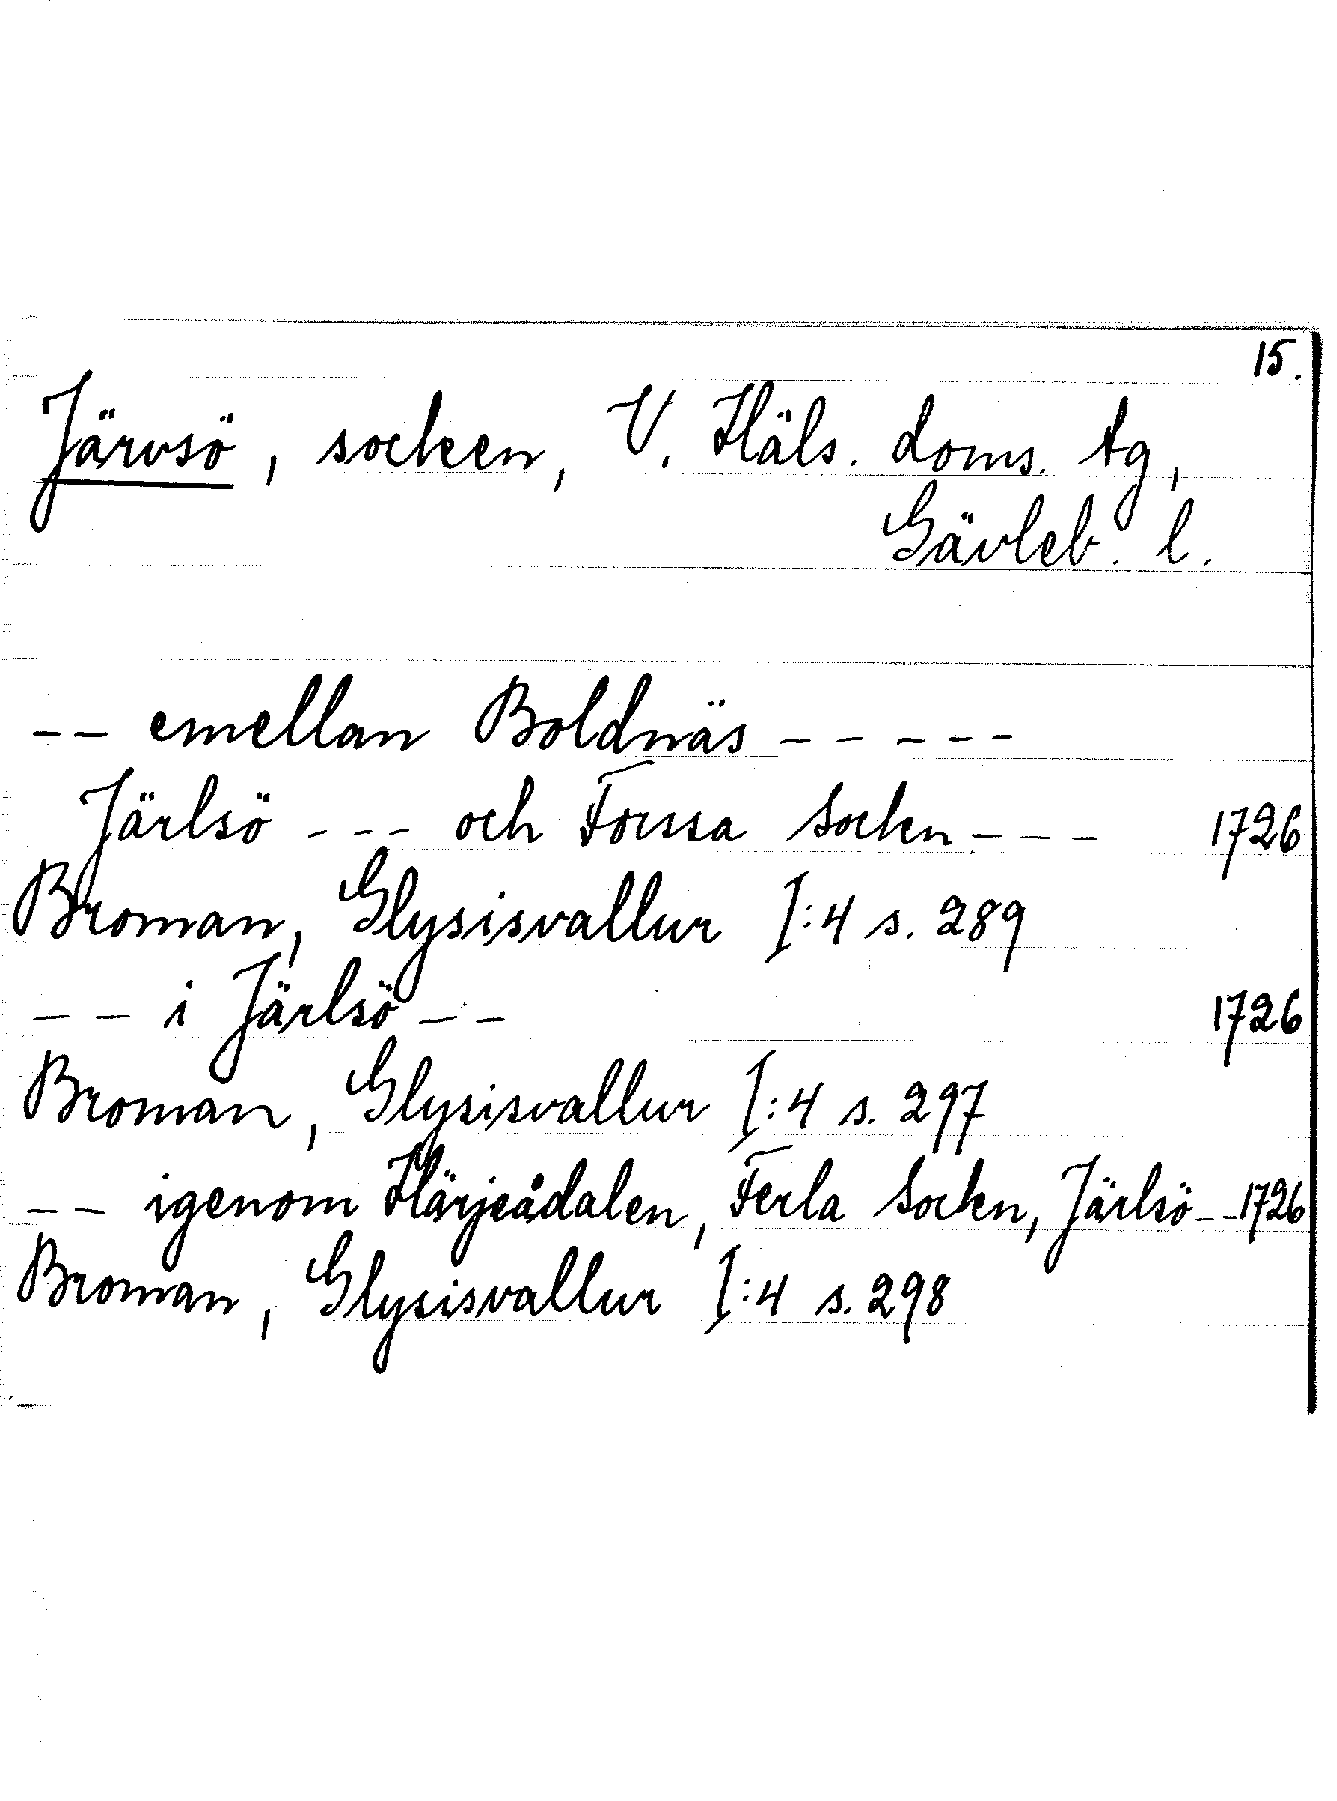 15.
Järvsö, socken, V. Häls. doms. tg,
Gävleb. l.
-- emellan Boldnäs -----
Järlsö --- och Forssa Socken --- 1726
Broman, Glysisvallur I:4 s. 289
-- i Järlsö -- 1726
Broman, Glysisvallur I:4 s. 297
-- igenom Härjeådalen, Ferla Socken, Järlsö -- 1726
Broman, Glysisvallur I:4 s. 298